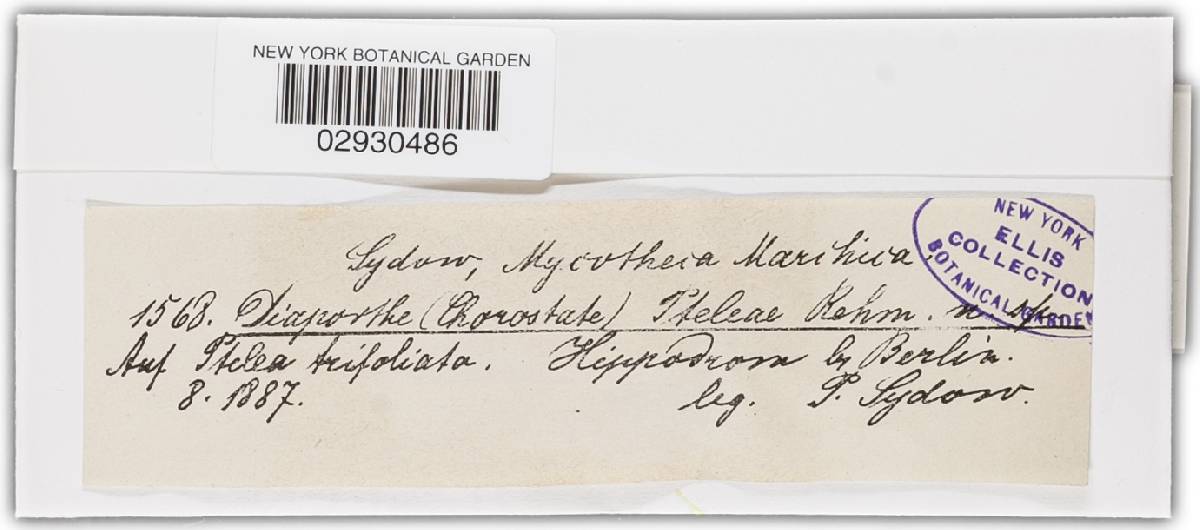 NEW YORK BOTANICAL GARDEN
02930486
NEW YORK
ELLIS
COLLECTION
BOTANICAL GARDEN
Sydow, Mycotheca Marchica,
1568. Diaporthe (Chorostate) Pteleae Rehm. n. sp.
Auf Ptelea trifoliata. Hippodrom by Berlin.
8. 1887. leg. P. Sydow.